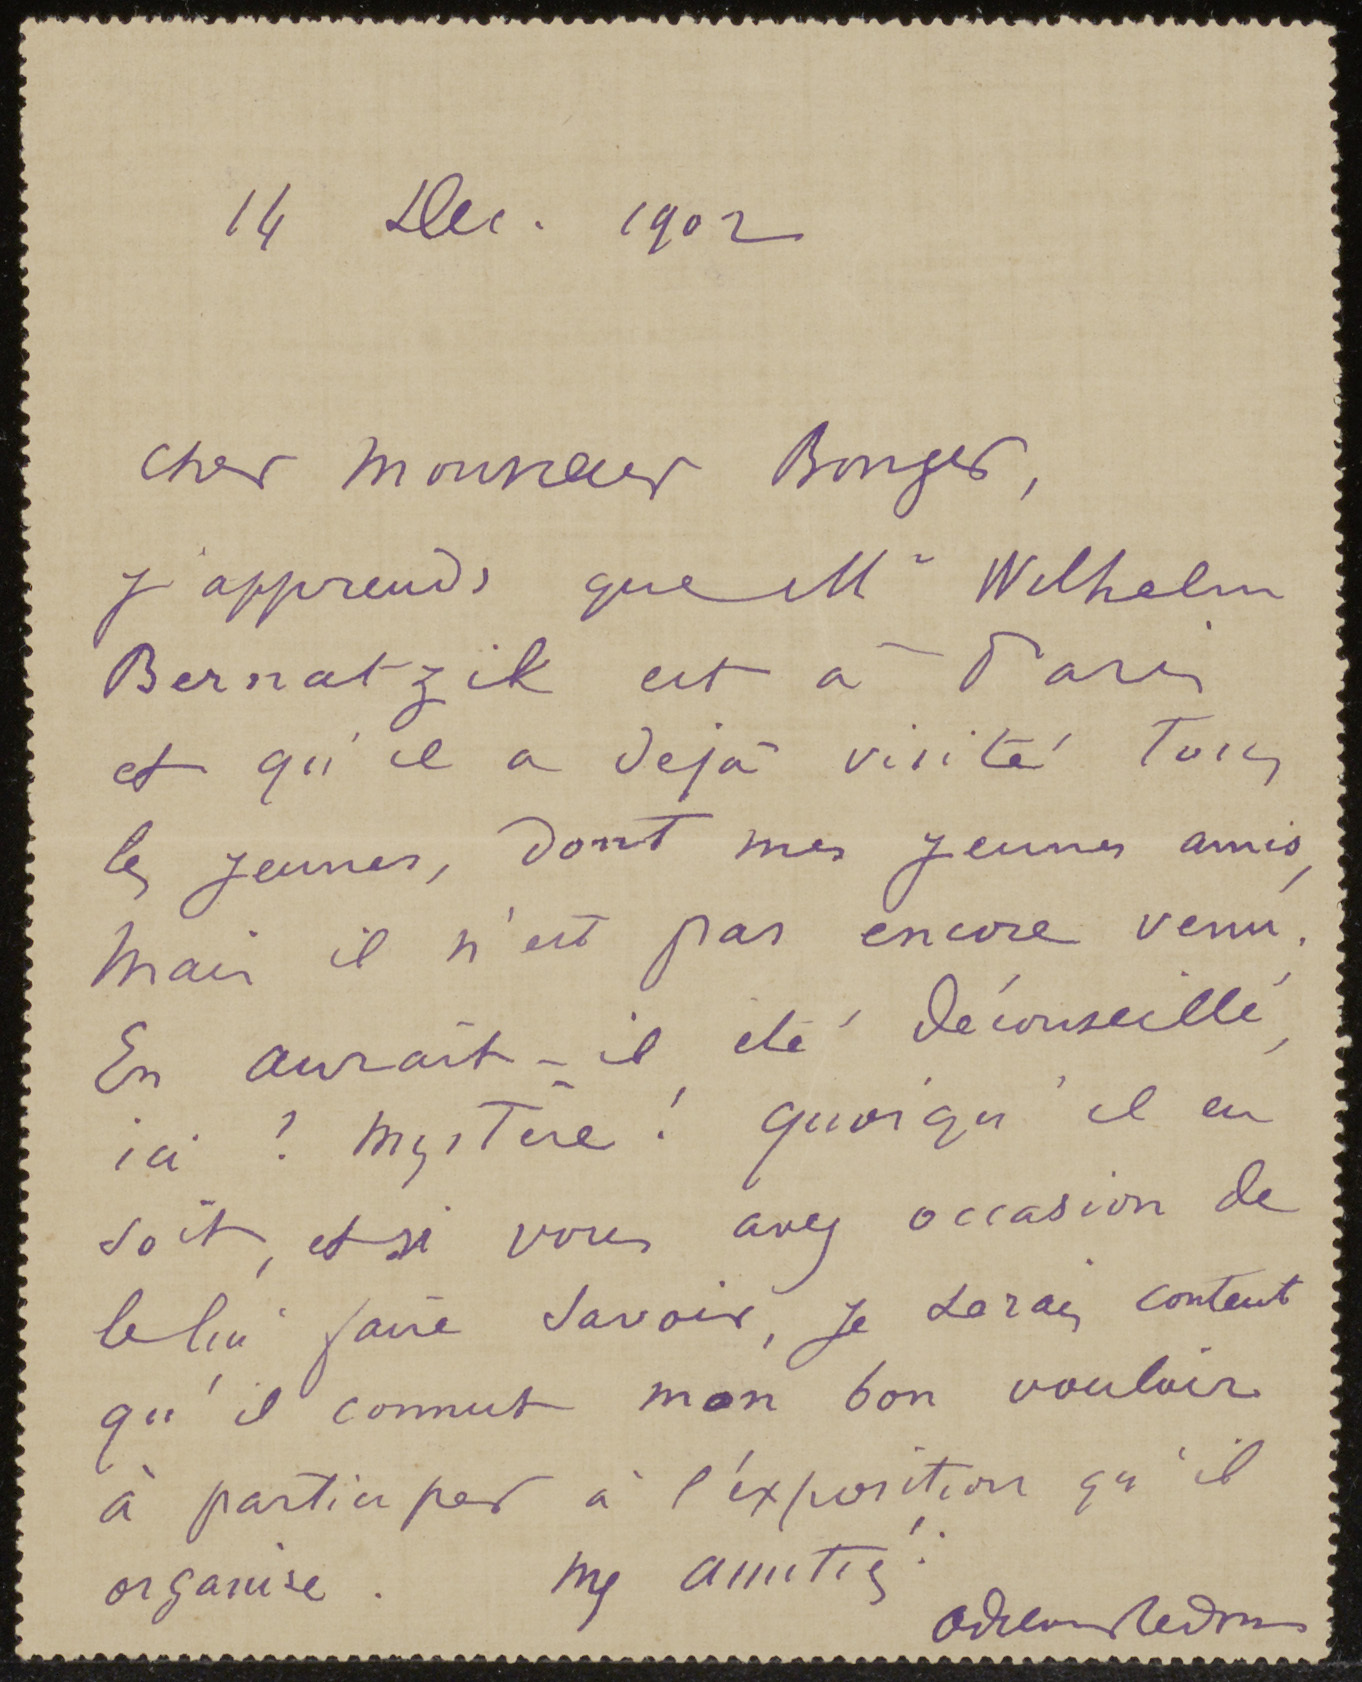 14 Dec. 1902
Cher Monsieur Bonger,
J'apprends que Mr Wilhelm
Bernatzik est à Paris
et qu'il a dejà visité tous
les jeunes, dont mes jeunes amis,
Mais il n'est pas encore venu.
En aurait-il été déconseillé,
ici ? Mystère ! quoiqu'il en
soit, et si vous avez occasion de
le lui faire savoir, je serais content
qu'il connut mon bon vouloir
à participer à l'éxposition qu'il
organise. Mes amitiés.
Odilon Redon